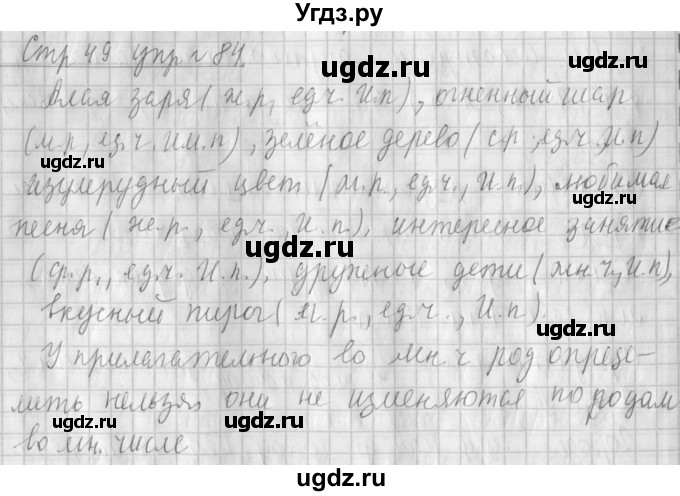 Угдз.ру
Стр 49 упр № 84
Алая заря (ж.р, ед.ч. И.п), огненный шар
(м.р, ед.ч. И.п), зелёное дерево (с.р, ед.ч. И.п)
изумрудный цвет (м.р., ед.ч., И.п.), любимая
песня (же.р., ед.ч., И.п.), интересное занятие
(ср.р., ед.ч. И.п.), дружные дети (мн.ч., И.п),
вкусный пирог (м.р., ед.ч., И.п).
У прилагательного во мн.ч род опреде-
лить нельзя, они не изменяются по родам
во мн. числе
ugdz.ru
ugdz.ru
ugdz.ru
ugdz.ru
ugdz.ru
ugdz.ru
ugdz.ru
ugdz.ru
ugdz.ru
ugdz.ru
ugdz.ru
ugdz.ru
ugdz.ru